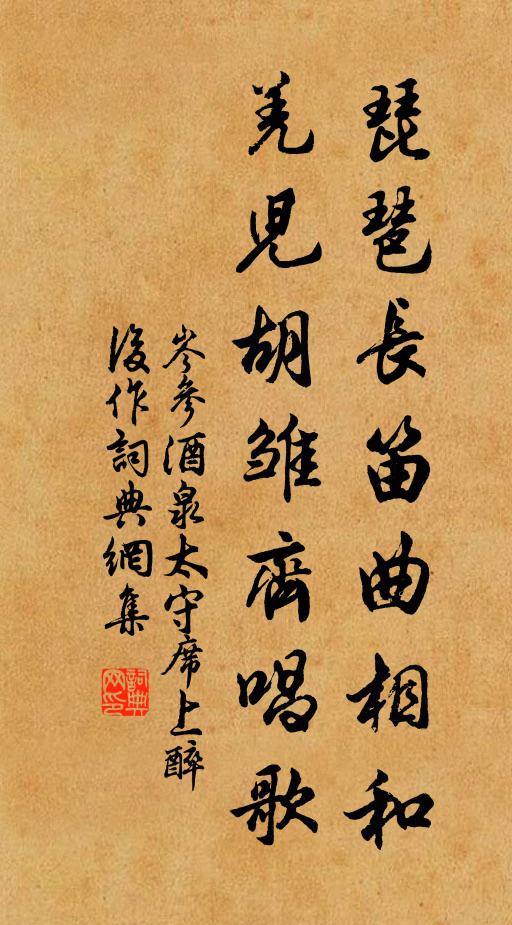 琵琶長笛曲相和
羌兒胡雛齊唱歌
岑參酒泉太守席上醉
後作詞典網集
詞典網印